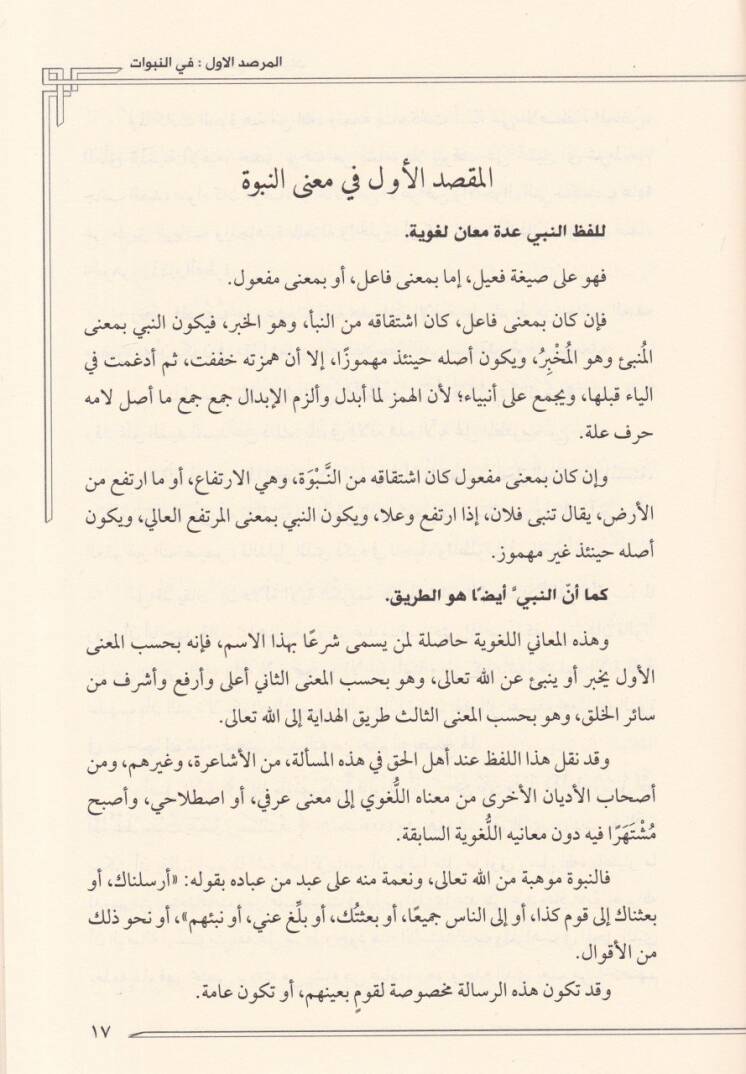 المرصد الاول : في النبوات
المقصد الأول في معنى النبوة
للفظ النبي عدة معان لغوية.
فهو على صيغة فعيل، إما بمعنى فاعل، أو بمعنى مفعول.
فإن كان بمعنى فاعل، كان اشتقاقه من النبأ، وهو الخبر، فيكون النبي بمعنى
المُنبئ وهو المُخْبِرُ، ويكون أصله حينئذ مهموزًا، إلا أن همزته خففت، ثم أدغمت في
الياء قبلها، ويجمع على أنبياء؛ لأن الهمز لما أبدل وألزم الإبدال جمع جمع ما أصل لامه
حرف علة.
وإن كان بمعنى مفعول كان اشتقاقه من النَّبْوَة، وهي الارتفاع، أو ما ارتفع من
الأرض، يقال تنبى فلان، إذا ارتفع وعلا، ويكون النبي بمعنى المرتفع العالي، ويكون
أصله حينئذ غير مهموز.
كما أنّ النبيَّ أيضًا هو الطريق.
وهذه المعاني اللغوية حاصلة لمن يسمى شرعًا بهذا الاسم، فإنه بحسب المعنى
الأول يخبر أو ينبئ عن الله تعالى، وهو بحسب المعنى الثاني أعلى وأرفع وأشرف من
سائر الخلق، وهو بحسب المعنى الثالث طريق الهداية إلى الله تعالى.
وقد نقل هذا اللفظ عند أهل الحق في هذه المسألة، من الأشاعرة، وغيرهم، ومن
أصحاب الأديان الأخرى من معناه اللُّغوي إلى معنى عرفي، أو اصطلاحي، وأصبح
مُشْتَهَرًا فيه دون معانيه اللُّغوية السابقة.
فالنبوة موهبة من الله تعالى، ونعمة منه على عبد من عباده بقوله: «أرسلناك، أو
بعثناك إلى قوم كذا، أو إلى الناس جميعًا، أو بعثتُك، أو بلِّغ عني، أو نبئهم»، أو نحو ذلك
من الأقوال.
وقد تكون هذه الرسالة مخصوصة لقومٍ بعينهم، أو تكون عامة.
١٧